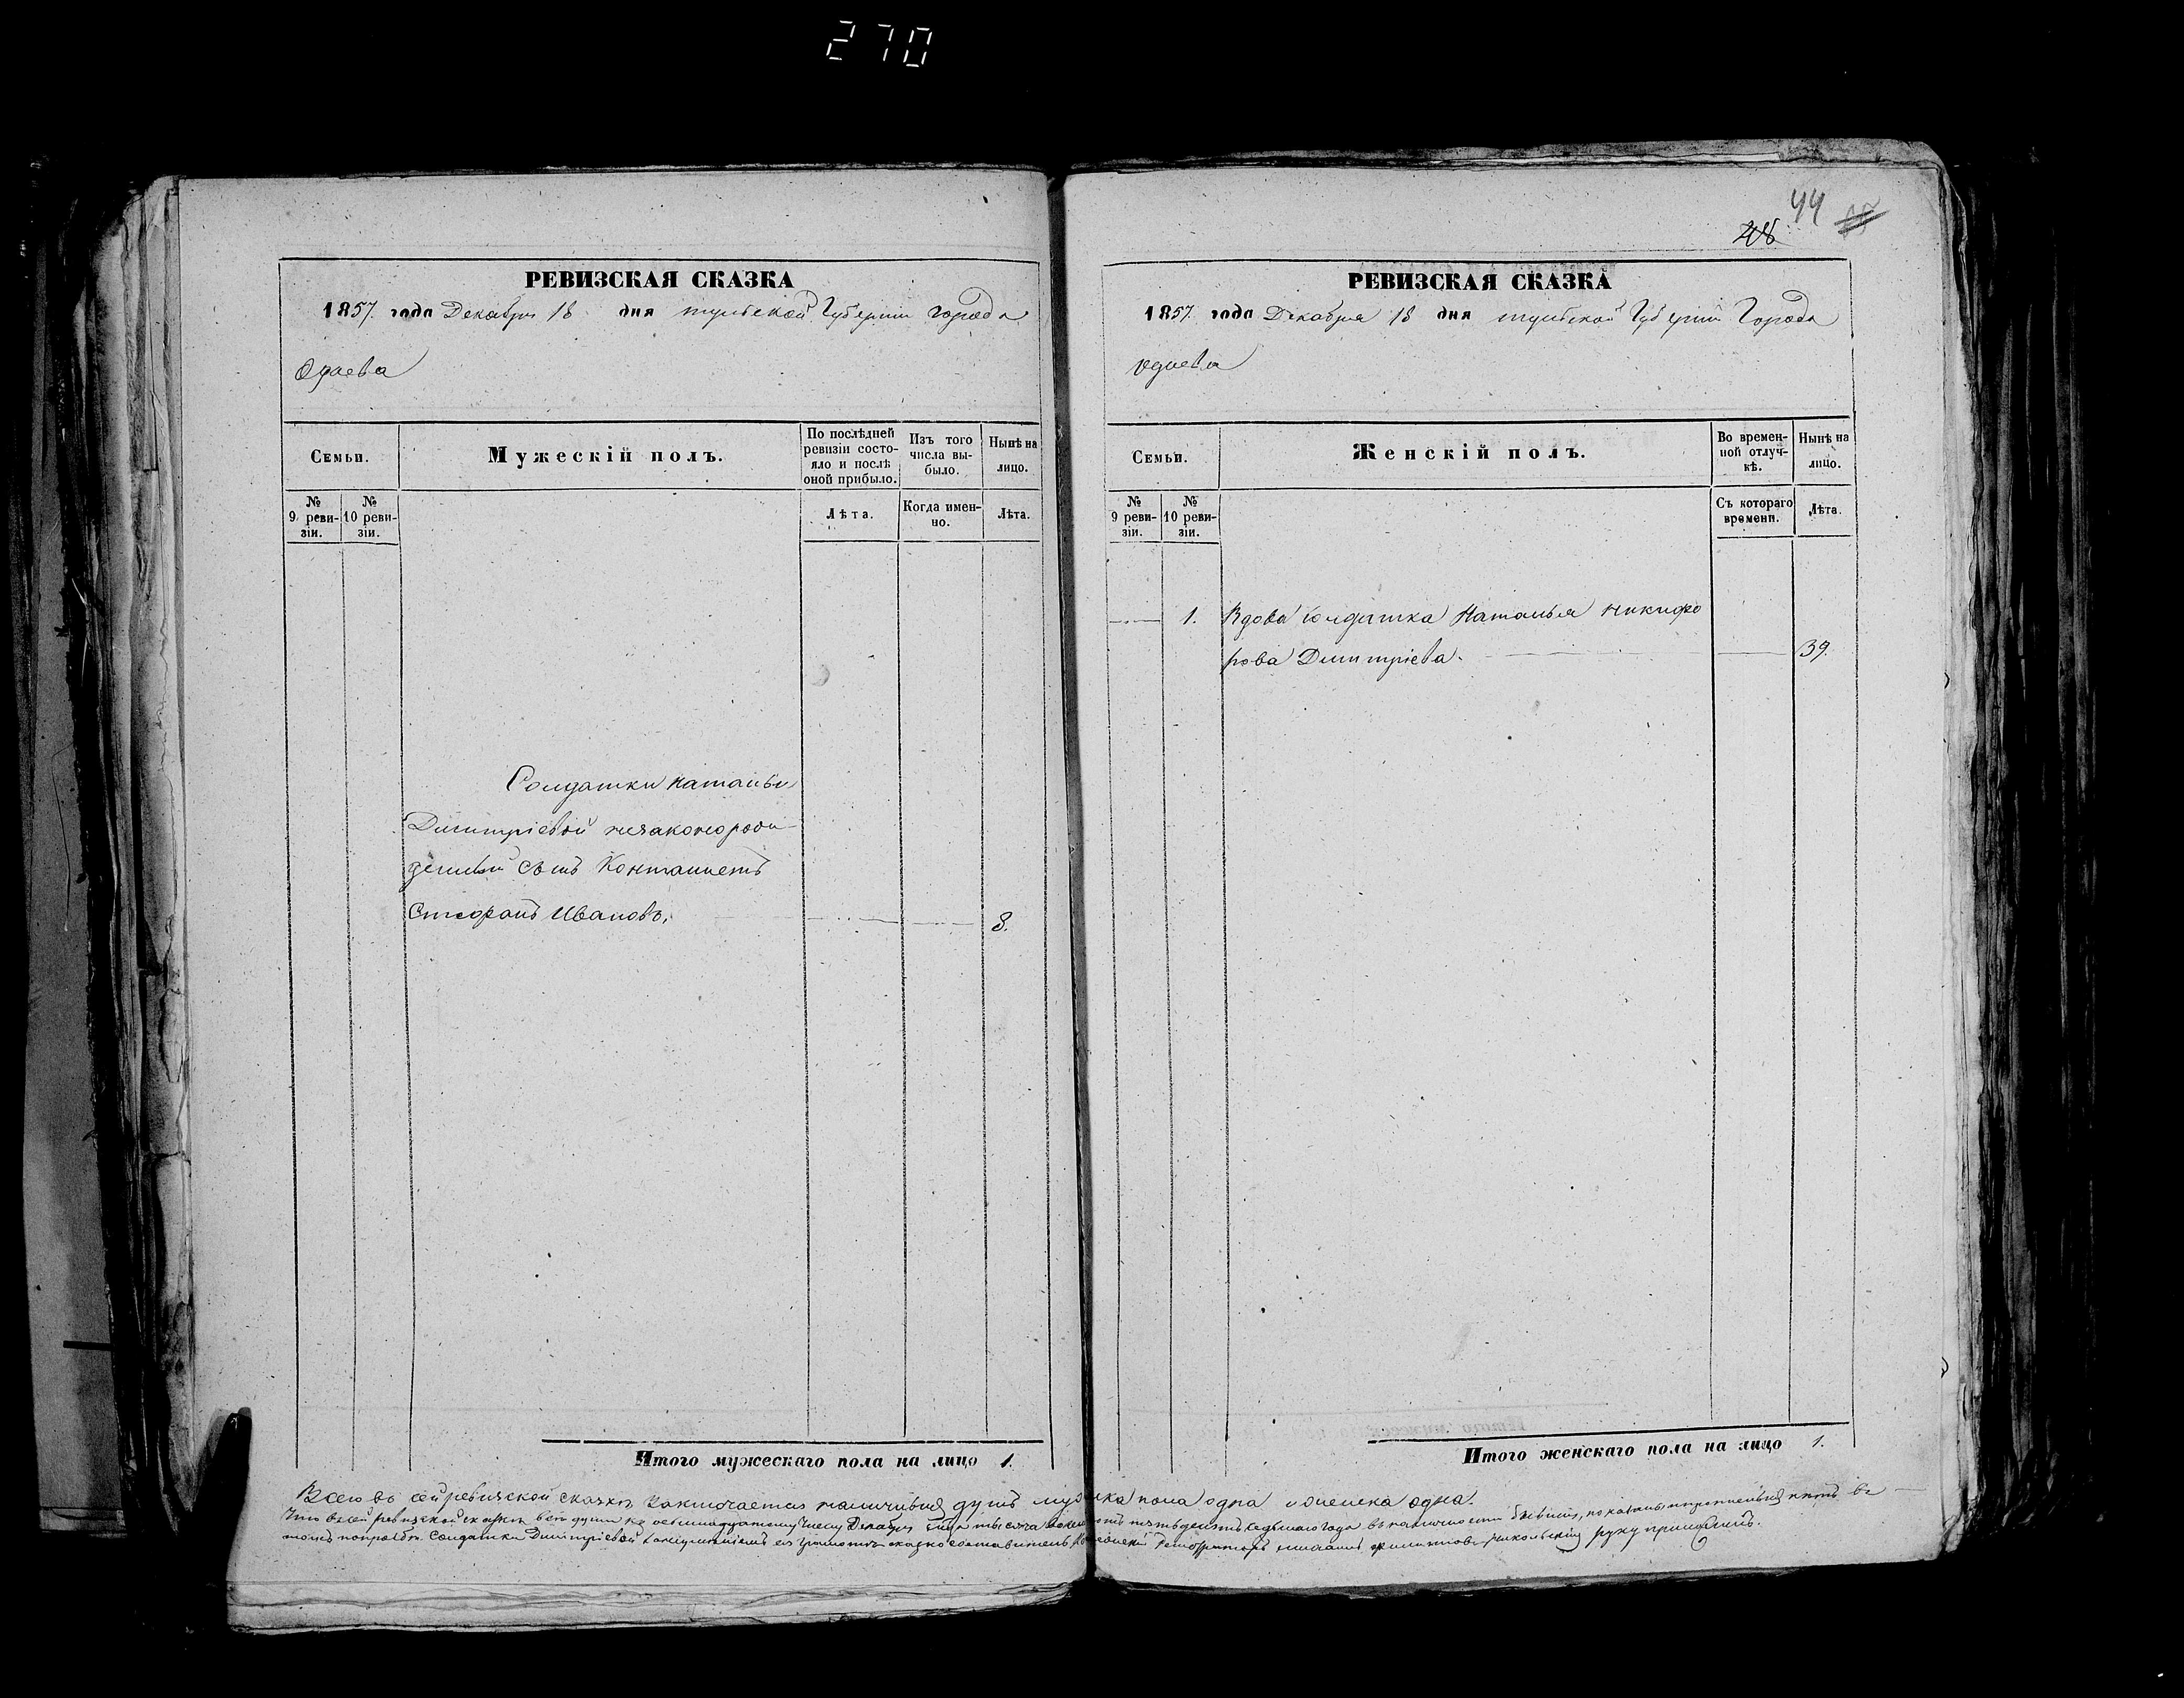 270
РЕВИЗСКАЯ СКАЗКА
1857. года Декабря 18 дня тульской Губернии города
Одоева
Семьи.
Мужескій полъ.
По послѣдней
ревизіи состо-
яло и послѣ
оной прибыло.
Изъ того
числа вы-
было.
Нынѣ на
лицо.
№
9 реви-
зіи.
№
10 реви-
зіи.
Лѣта.
Когда имен-
но.
Лѣта.
Солдатки натальи
Димитріевой незаконорож-
денный сынъ Контанистъ
Стефанъ Ивановъ.
8.
Итого мужескаго пола на лицо 1.
44
РЕВИЗСКАЯ СКАЗКА
1857. года Декабря 18 дня тульской Губерніи Города
Одоева
Семьи.
Женскій полъ.
Во времен-
ной отлуч-
кѣ.
Нынѣ на
лицо.
№
9 реви-
зіи.
№
10 реви-
зіи.
Съ котораго
времени.
Лѣта.
1. Вдова солдатка Наталья никифо
рова Димитріева. 39.
Итого женскаго пола на лицо 1.
Всего въ сей ревизской сказкѣ заключается наличныхъ душъ мужска пола одна и женска одна.
Что в сей ревизской сказкѣ всѣ души къ осьмнадцатому числу Декабря тысяча пятьдесятъ седьмаго года въ наличности бывшія, показаны и прописныхъ нѣтъ въ
томъ попрозбѣ Солдатки Димитріевой сказко составитель Регистраторъ никольскій руку приложилъ.